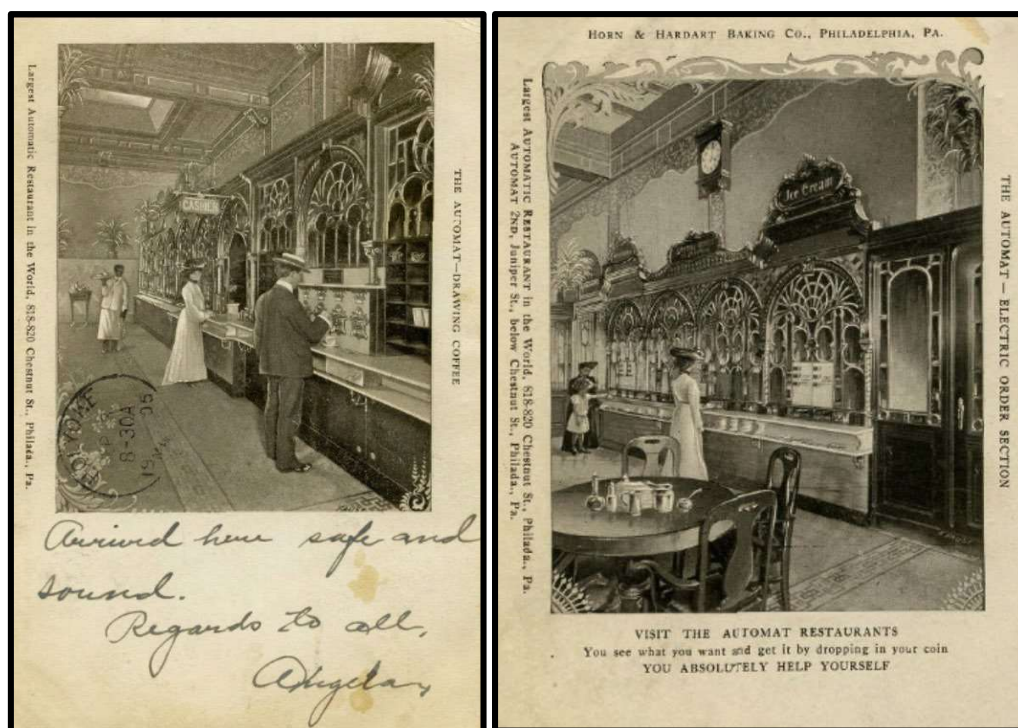 Largest Automatic Restaurant in the World, 818-820 Chestnut St., Philada., Pa.
CASHIER
THE AUTOMAT—DRAWING COFFEE
8-30A
1905
Arrived here safe and
sound.
Regards to all,
HORN & HARDART BAKING CO., PHILADELPHIA, PA.
Largest AUTOMATIC RESTAURANT in the World, 818-820 Chestnut St., Philada., Pa.
AUTOMAT 2ND, Juniper St., below Chestnut St., Philada., Pa.
Ice Cream
THE AUTOMAT — ELECTRIC ORDER SECTION
VISIT THE AUTOMAT RESTAURANTS
You see what you want and get it by dropping in your coin
YOU ABSOLUTELY HELP YOURSELF